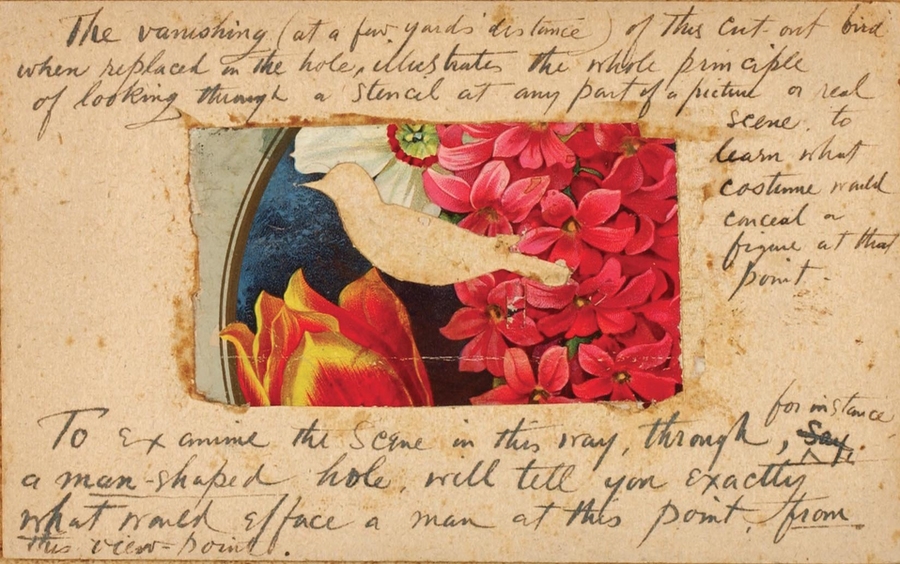 The vanishing (at a few yards' distance) of this cut-out bird
when replaced in the hole, illustrates the whole principle
of looking through a stencil at any part of a picture or real
scene, to
learn what
costume would
conceal a
figure at that
point.
for instance
To examine the scene in this way, through, Say,
a man-shaped hole, will tell you exactly
what would efface a man at this point, from
this view-point.